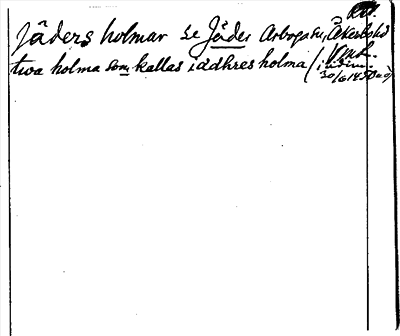 Jäders holmar se Jäder Arboga sn, Åkerbo hd
Vmk.
twa holma som kallas iädhres holma (i vidim.
30/6 1450